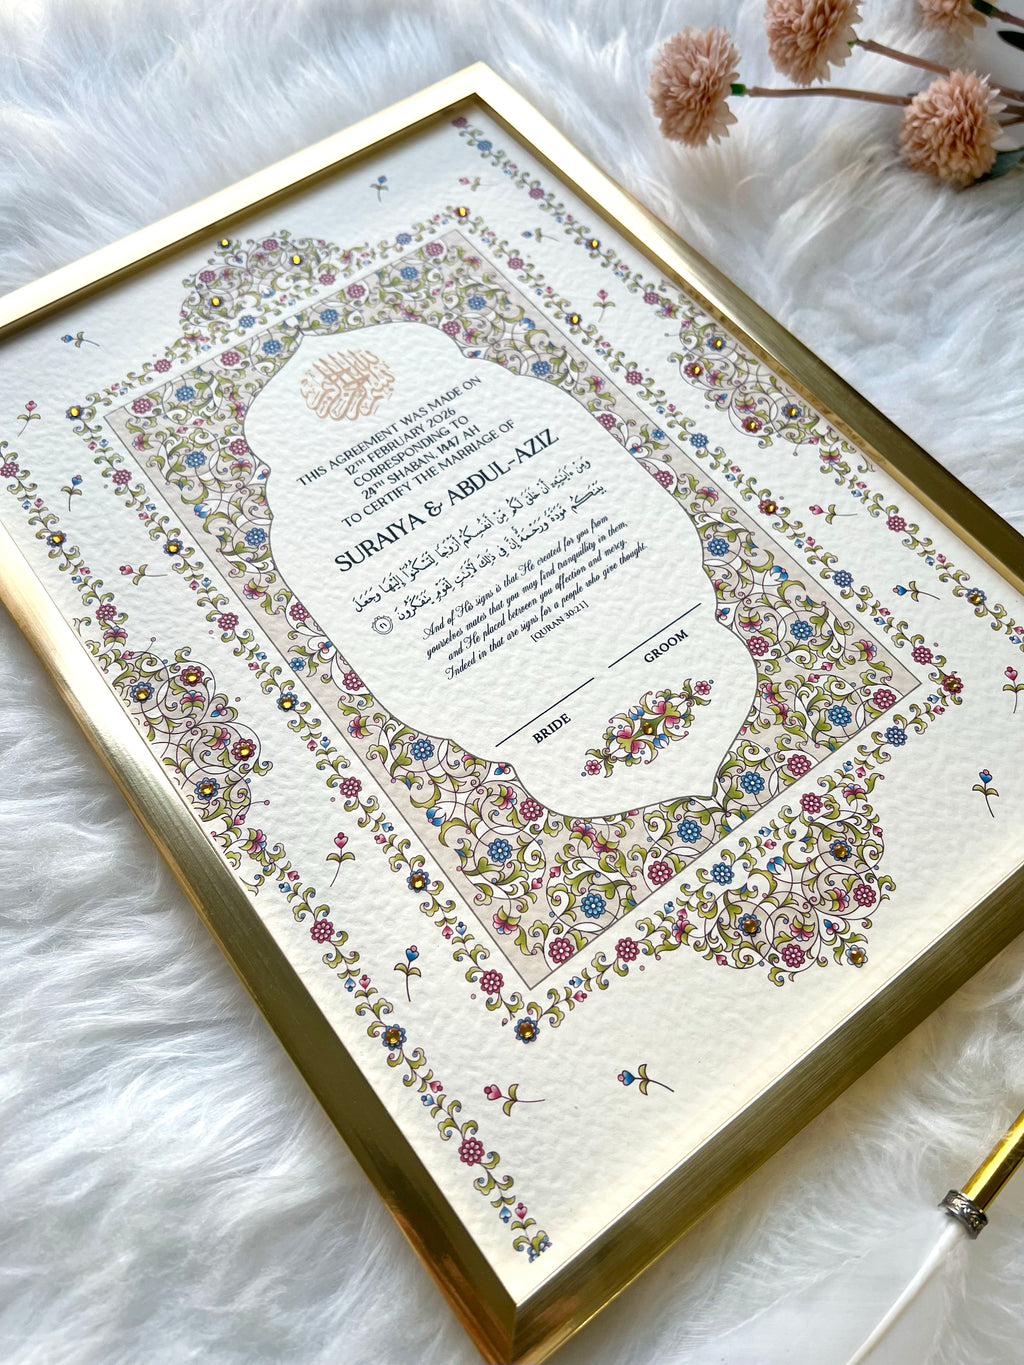 THIS AGREEMENT WAS MADE ON
12TH FEBRUARY 2026
CORRESPONDING TO
24TH SHABAN, 1447 AH
TO CERTIFY THE MARRIAGE OF
SURAIYA & ABDUL-AZIZ
وَمِنْ ءَايَـٰتِهِۦٓ أَنْ خَلَقَ لَكُم مِّنْ أَنفُسِكُمْ أَزْوَٰجًا لِّتَسْكُنُوٓا۟ إِلَيْهَا وَجَعَلَ
بَيْنَكُم مَّوَدَّةً وَرَحْمَةً ۚ إِنَّ فِى ذَٰلِكَ لَـَٔايَـٰتٍ لِّقَوْمٍ يَتَفَكَّرُونَ ٢١
And of His signs is that He created for you from
yourselves mates that you may find tranquillity in them,
and He placed between you affection and mercy.
Indeed in that are signs for a people who give thought.
[QURAN 30:21]
BRIDE
GROOM